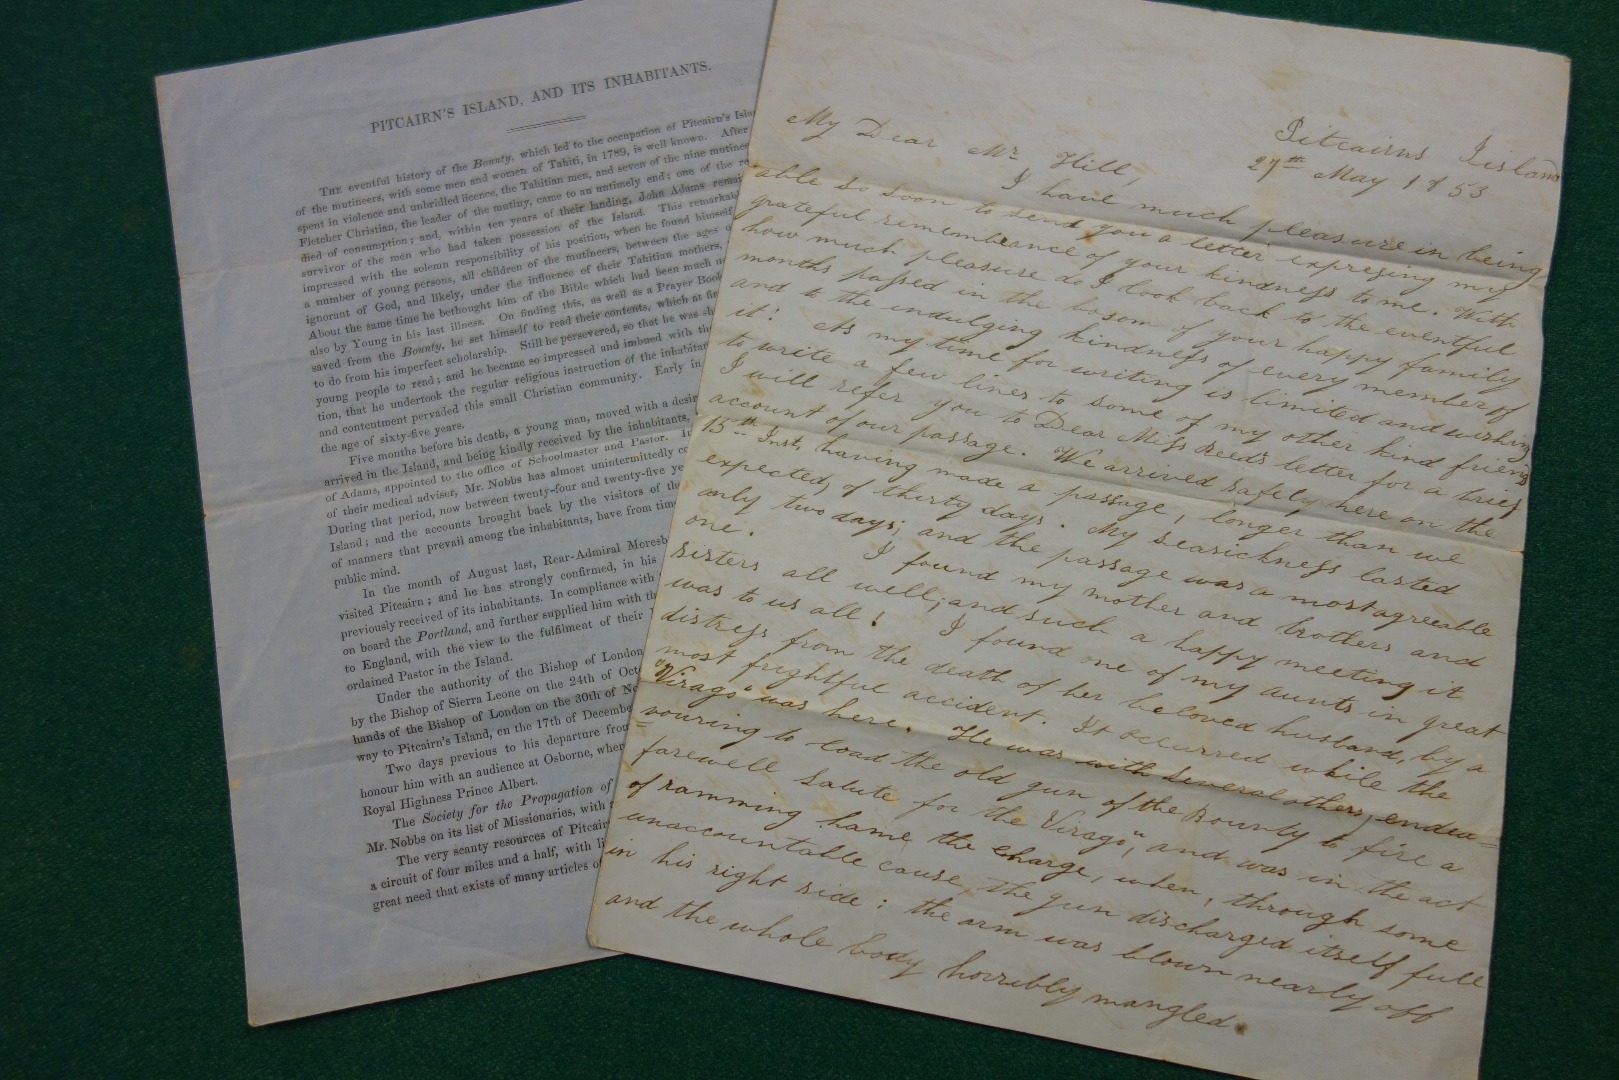 PITCAIRN'S ISLAND, AND ITS INHABITANTS.
THE eventful history of the Bounty, which led to the occupation of Pitcairn's Isla
of the mutineers, with some men and women of Tahiti, in 1789, is well known. After
spent in violence and unbridled licence, the Tahitian men, and seven of the nine mutine
Fletcher Christian, the leader of the mutiny, came to an untimely end; one of the re
died of consumption; and, within ten years of their landing, John Adams remai
survivor of the men who had taken possession of the Island. This remarkab
impressed with the solemn responsibility of his position, when he found himself
a number of young persons, all children of the mutineers, between the ages o
ignorant of God, and likely, under the influence of their Tahitian mothers,
About the same time he bethought him of the Bible which had been much u
also by Young in his last illness. On finding this, as well as a Prayer Book
saved from the Bounty, he set himself to read their contents, which at fi
to do from his imperfect scholarship. Still he persevered, so that he was sh
young people to read; and he became so impressed and imbued with the
tion, that he undertook the regular religious instruction of the inhabitan
and contentment pervaded this small Christian community. Early in
the age of sixty-five years.
Five months before his death, a young man, moved with a desir
arrived in the Island, and being kindly received by the inhabitants,
of Adams, appointed to the office of Schoolmaster and Pastor. In
of their medical adviser, Mr. Nobbs has almost unintermittedly co
During that period, now between twenty-four and twenty-five ye
Island; and the accounts brought back by the visitors of th
of manners that prevail among the inhabitants, have from time
public mind.
In the month of August last, Rear-Admiral Moresb
visited Pitcairn; and he has strongly confirmed, in his
previously received of its inhabitants. In compliance with
on board the Portland, and further supplied him with th
to England, with the view to the fulfilment of their
ordained Pastor in the Island.
Under the authority of the Bishop of London
by the Bishop of Sierra Leone on the 24th of Octo
hands of the Bishop of London on the 30th of No
way to Pitcairn's Island, on the 17th of Decembe
Two days previous to his departure from
honour him with an audience at Osborne, wher
Royal Highness Prince Albert.
The Society for the Propagation of
Mr. Nobbs on its list of Missionaries, with
The very scanty resources of Pitcair
a circuit of four miles and a half, with li
great need that exists of many articles o
Pitcairns Island
27th May 1853
My Dear Mr Hill,
I have much pleasure in being
able so soon to send you a letter expressing my
grateful remembrance of your kindness to me. With
how much pleasure do I look back to the eventful
months passed in the bosom of your happy family
and to the indulging kindness of every member of
it! As my time for writing is limited and wishing
to write a few lines to some of my other kind friends
I will refer you to Dear Miss Reed's letter for a brief
account of our passage. We arrived safely here on the
15th Inst, having made a passage, longer than we
expected, of thirty days. My seasickness lasted
only two days; and the passage was a most agreeable
one. I found my mother and brothers and
sisters all well; and such a happy meeting it
was to us all! I found one of my aunts in great
distress from the death of her beloved husband, by a
most frightful accident. It occurred while the
"Virago" was here. He was with several others, endea=
=vouring to load the old gun of the Bounty to fire a
farewell salute for the "Virago", and was in the act
of ramming hame the charge, when, through some
unaccountable cause, the gun discharged itself full
in his right side: the arm was blown nearly off
and the whole body horribly mangled.